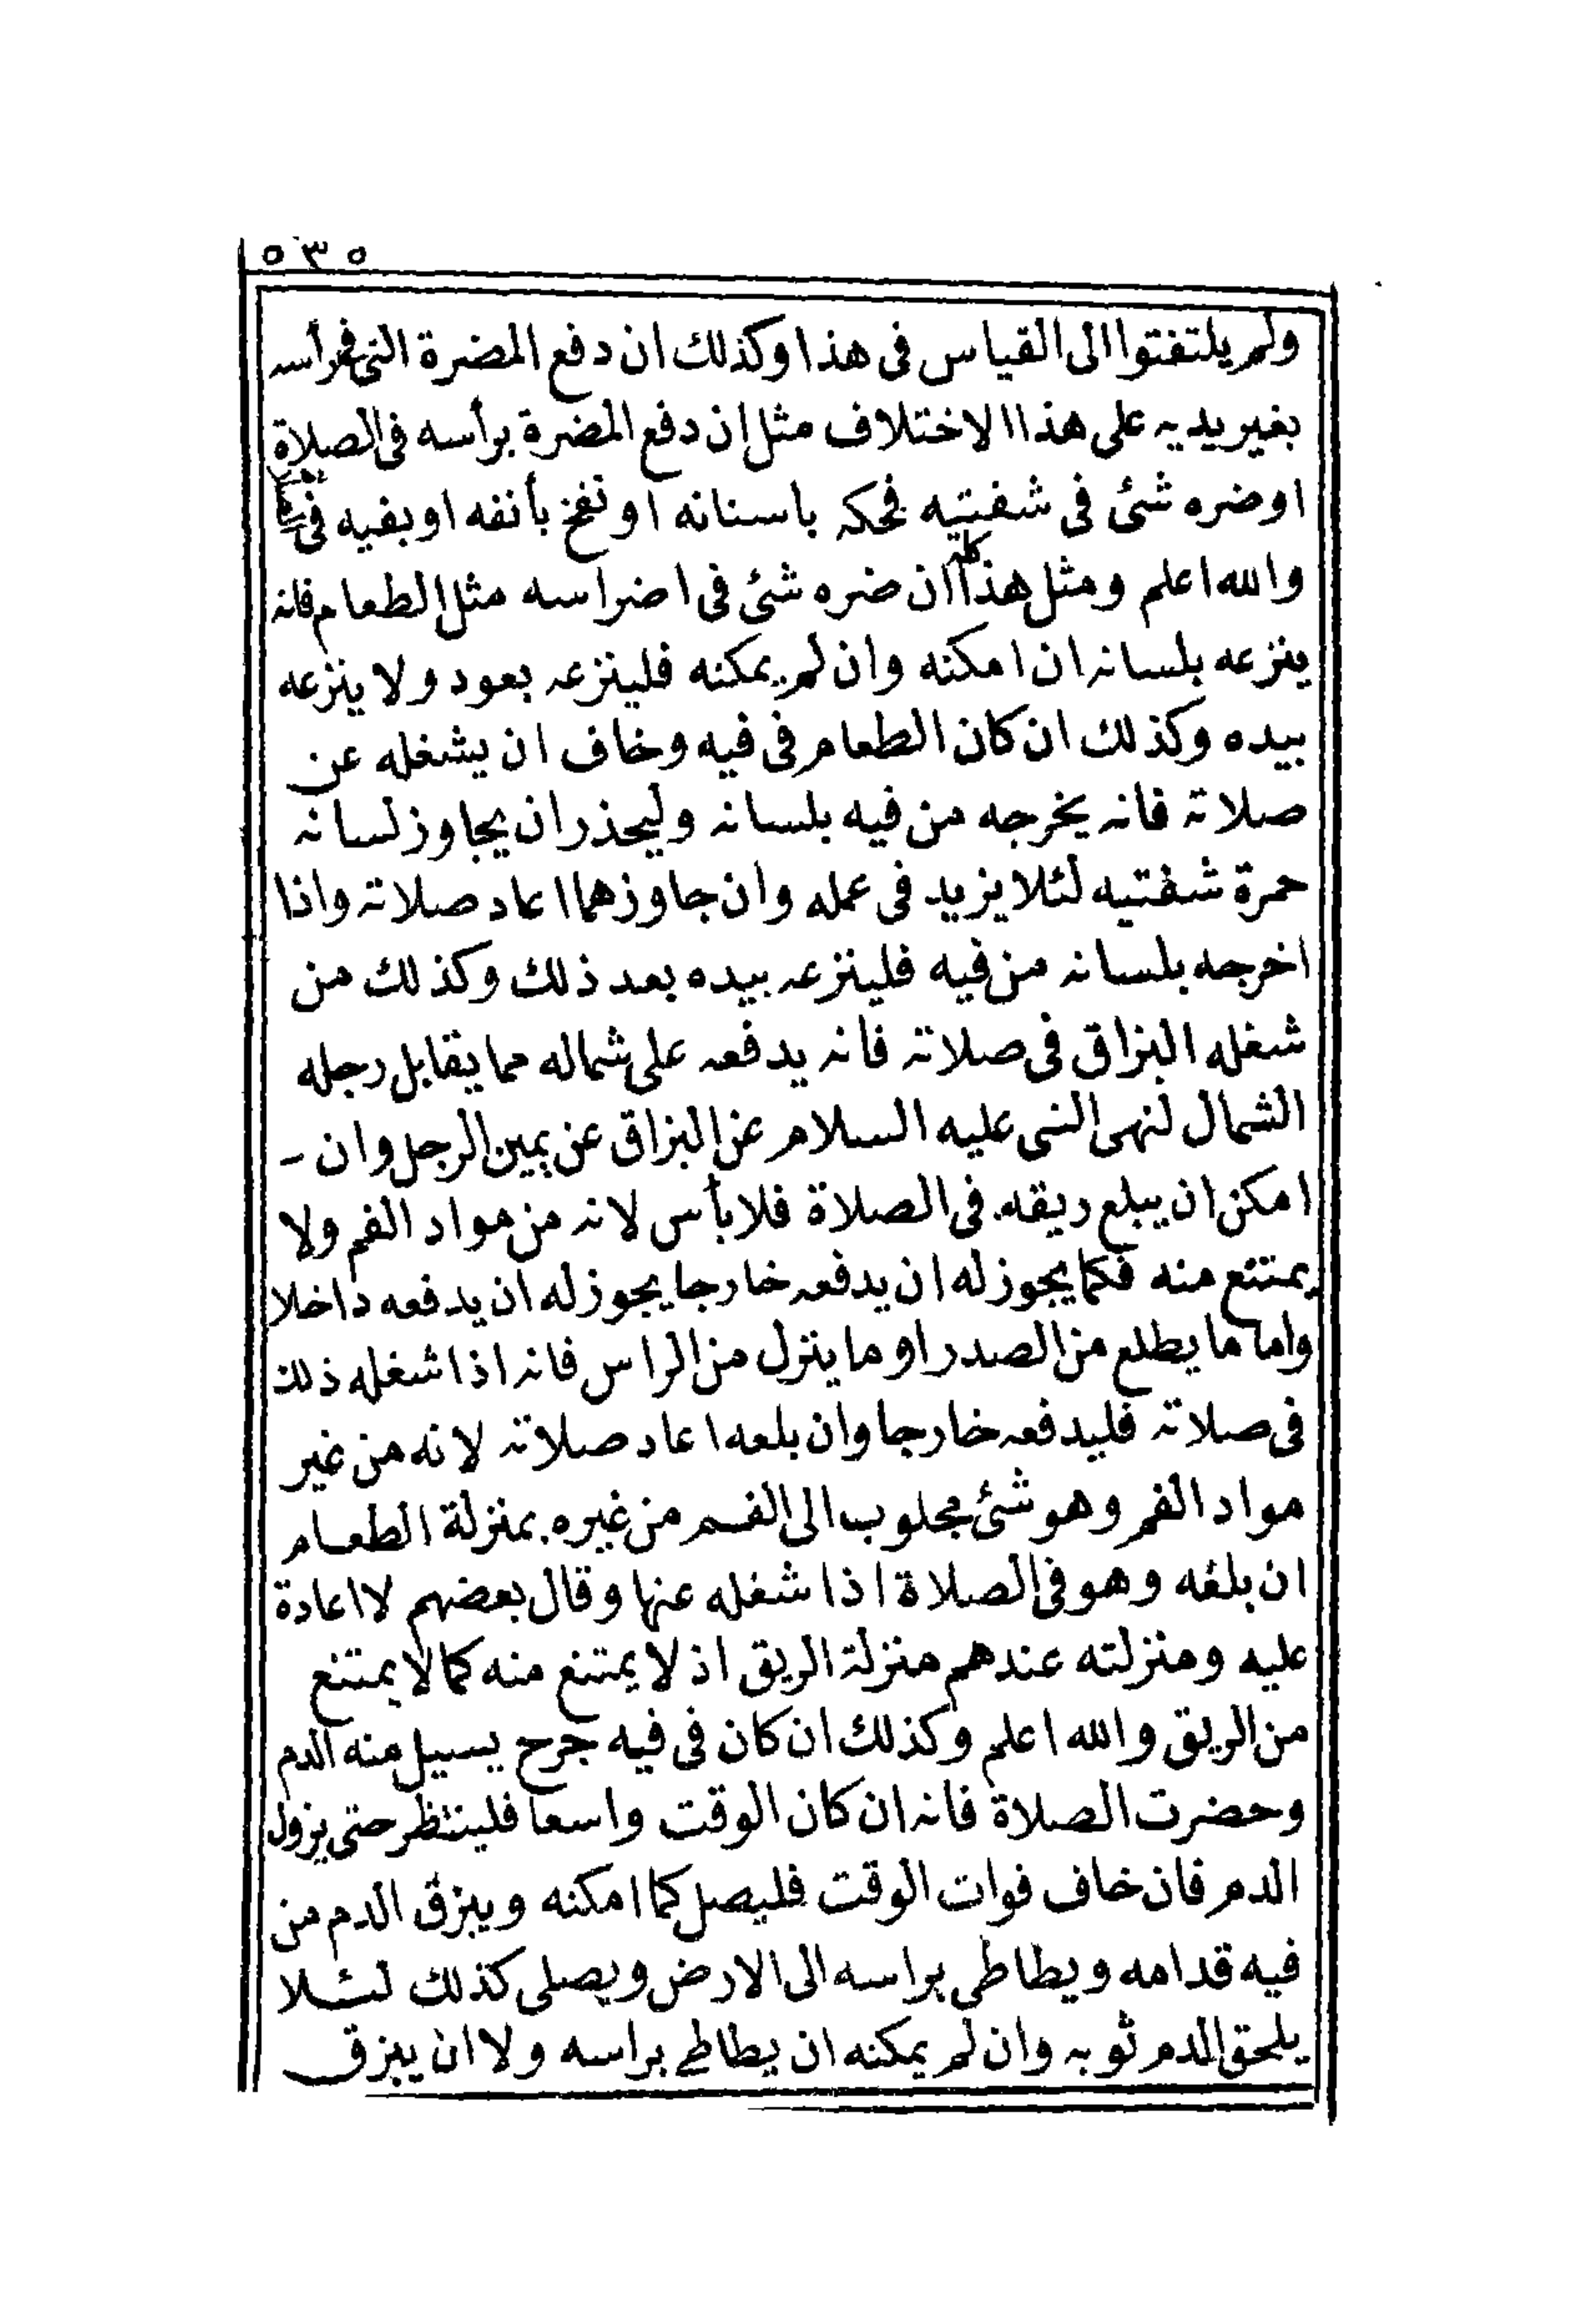 ٥٣٥
ولم يلتفتوا الى القياس فى هذا وكذلك ان دفع المضرة التى فى رأسه
بغير يديه على هذا الاختلاف مثل ان دفع المضرة برأسه فى الصلاة
او ضره شئ فى شفتيه فحكه باسنانه او نفخ بأنفه او بفيه فى
والله اعلم ومثل هذا كله ان ضره شئ فى اضراسه مثل الطعام فانه
ينزعه بلسانه ان امكنه وان لم يمكنه فلينزعه بعود ولا ينزعه
بيده وكذلك ان كان الطعام فى فيه وخاف ان يشغله عن
صلاته فانه يخرجه من فيه بلسانه وليحذر ان يجاوز لسانه
حمرة شفتيه لئلا يزيد فى عمله وان جاوزهما اعاد صلاته واذا
اخرجه بلسانه من فيه فلينزعه بيده بعد ذلك وكذلك من
شغله البزاق فى صلاته فانه يدفعه على شماله مما يقابل رجله
الشمال لنهى النبى عليه السلام عن البزاق عن يمين الرجل وان -
امكن ان يبلع ريقه فى الصلاة فلا بأس لانه من مواد الفم ولا
يمتنع منه فكما يجوز له ان يدفعه خارجا يجوز له ان يدفعه داخلا
واما ما يطلع من الصدر او ما ينزل من الراس فانه اذا شغله ذلك
فى صلاته فليدفعه خارجا وان بلعه اعاد صلاته لانه من غير
مواد الفم وهو شئ مجلوب الى الفم من غيره بمنزلة الطعام
ان بلغه وهو فى الصلاة اذا شغله عنها وقال بعضهم لا اعادة
عليه ومنزلته عندهم منزلة الريق اذ لا يمتنع منه كما لا يمتنع
من الريق والله اعلم وكذلك ان كان فى فيه جرح يسيل منه الدم
وحضرت الصلاة فانه ان كان الوقت واسعا فلينتظر حتى يزول
الدم فان خاف فوات الوقت فليصل كما امكنه ويبزق الدم من
فيه قدامه ويطاطى براسه الى الارض ويصلى كذلك لئلا
يلحق الدم ثوبه وان لم يمكنه ان يطاطى براسه ولا ان يبزق